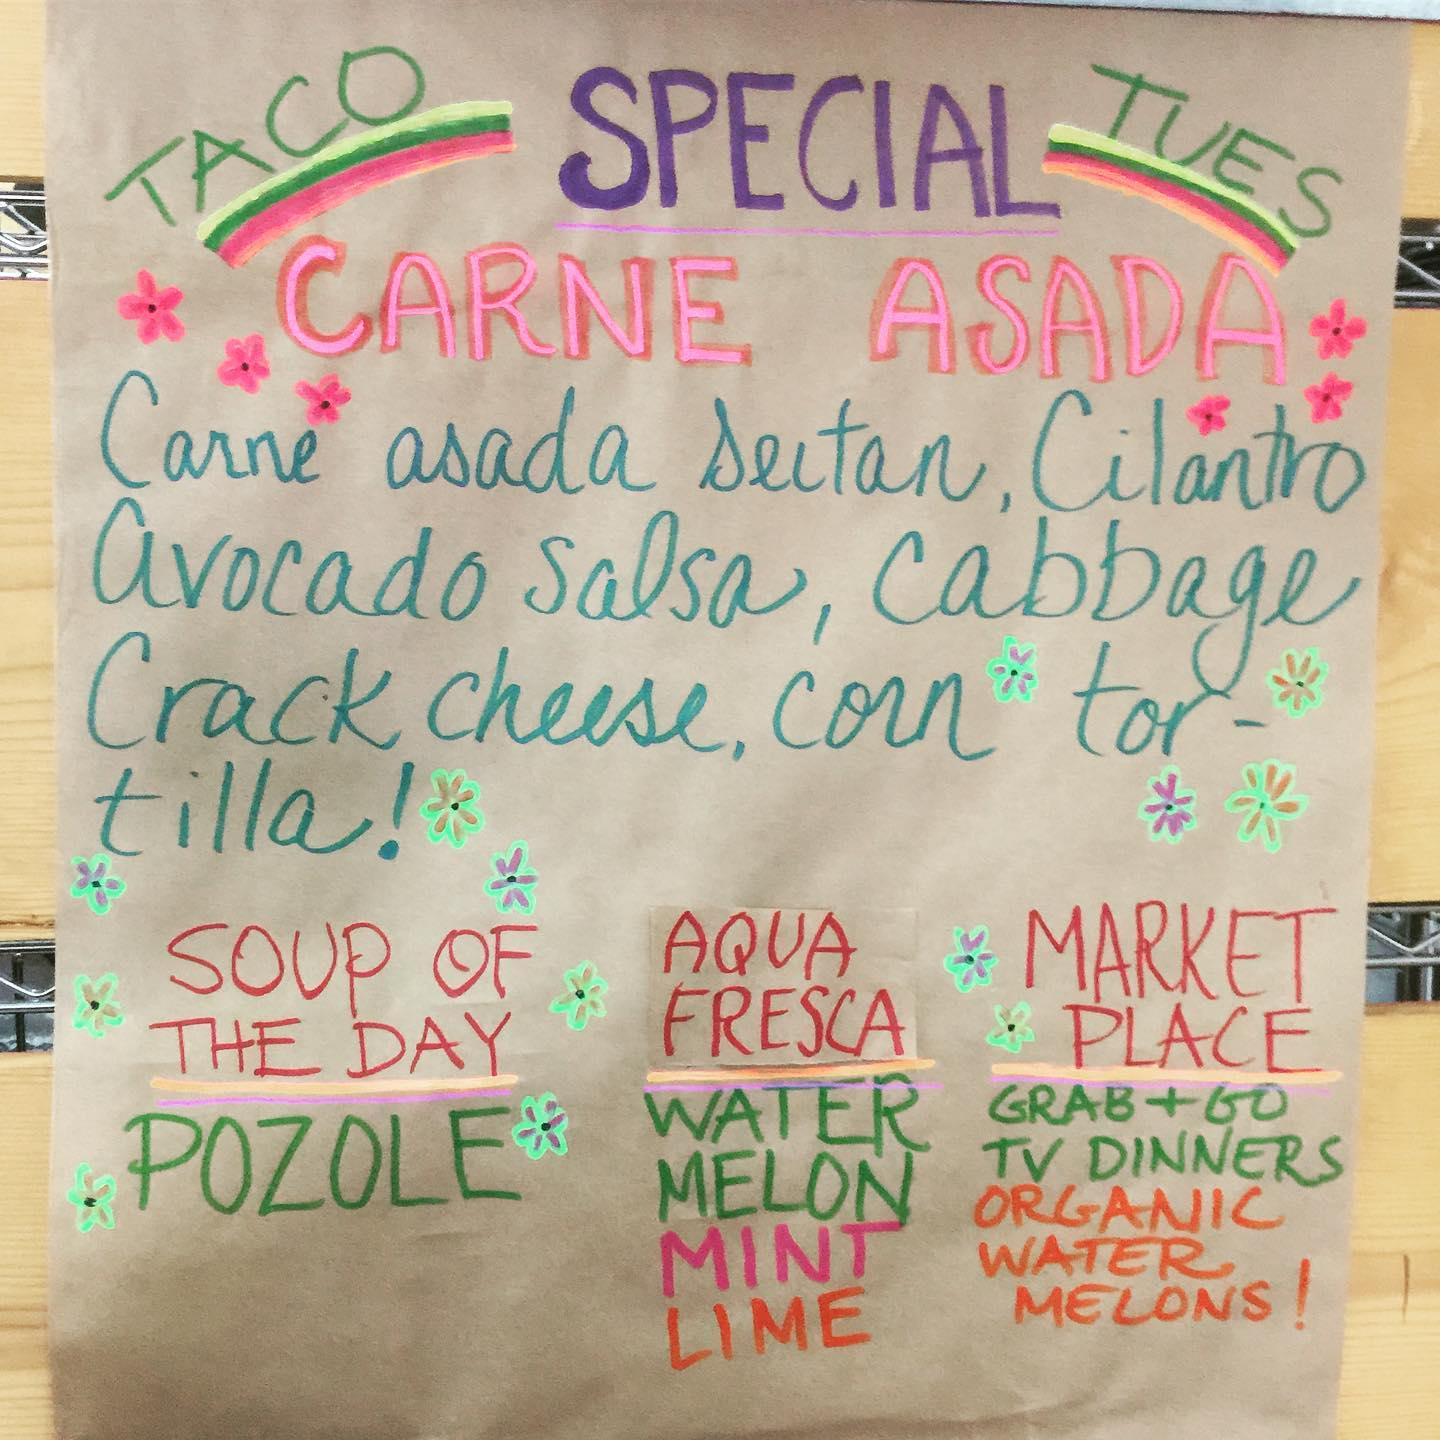 TACO SPECIAL TUES
CARNE ASADA
Carne asada seitan, Cilantro
Avocado salsa, cabbage
Crack cheese, corn tor-
tilla!
SOUP OF
THE DAY
POZOLE
AQUA
FRESCA
WATER
MELON
MINT
LIME
MARKET
PLACE
GRAB + GO
TV DINNERS
ORGANIC
WATER
MELONS!